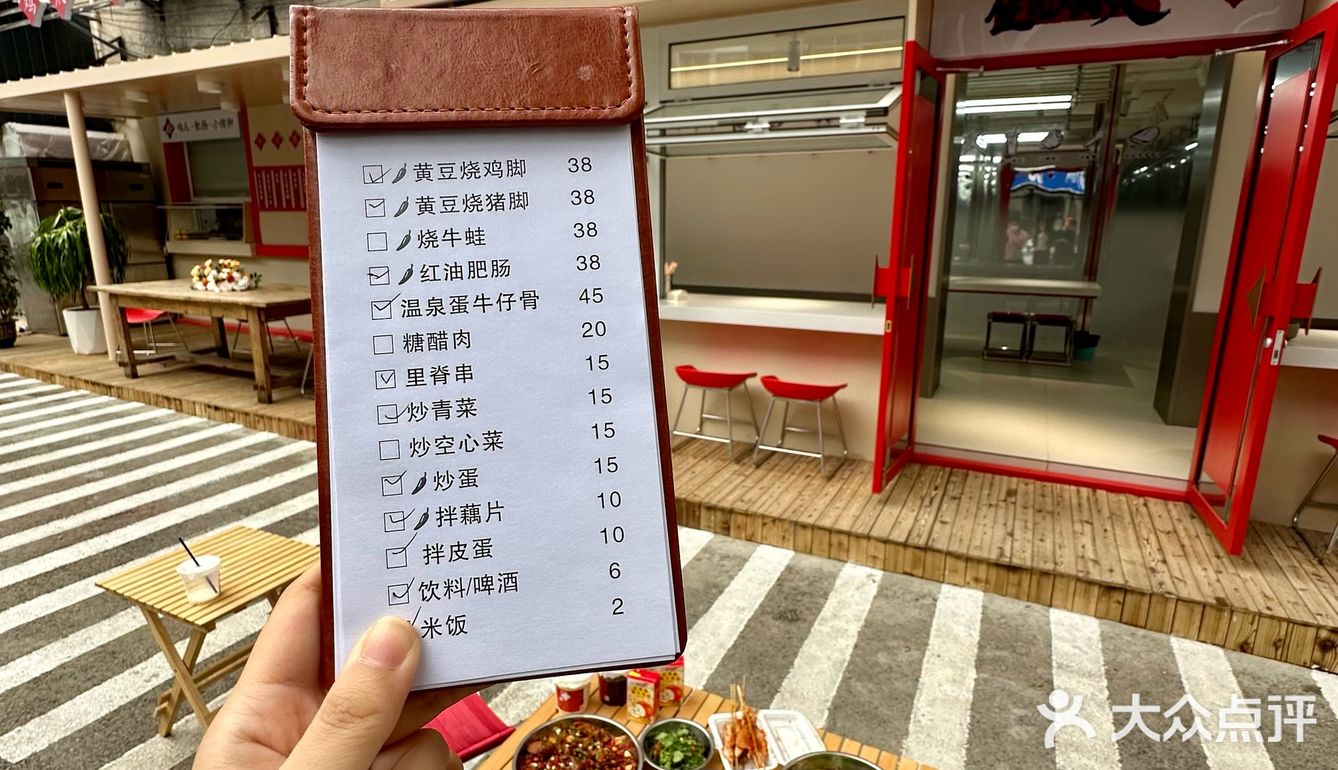 黄豆烧鸡脚 38
黄豆烧猪脚 38
烧牛蛙 38
红油肥肠 38
温泉蛋牛仔骨 45
糖醋肉 20
里脊串 15
炒青菜 15
炒空心菜 15
炒蛋 15
拌藕片 10
拌皮蛋 10
饮料/啤酒 6
米饭 2
大众点评